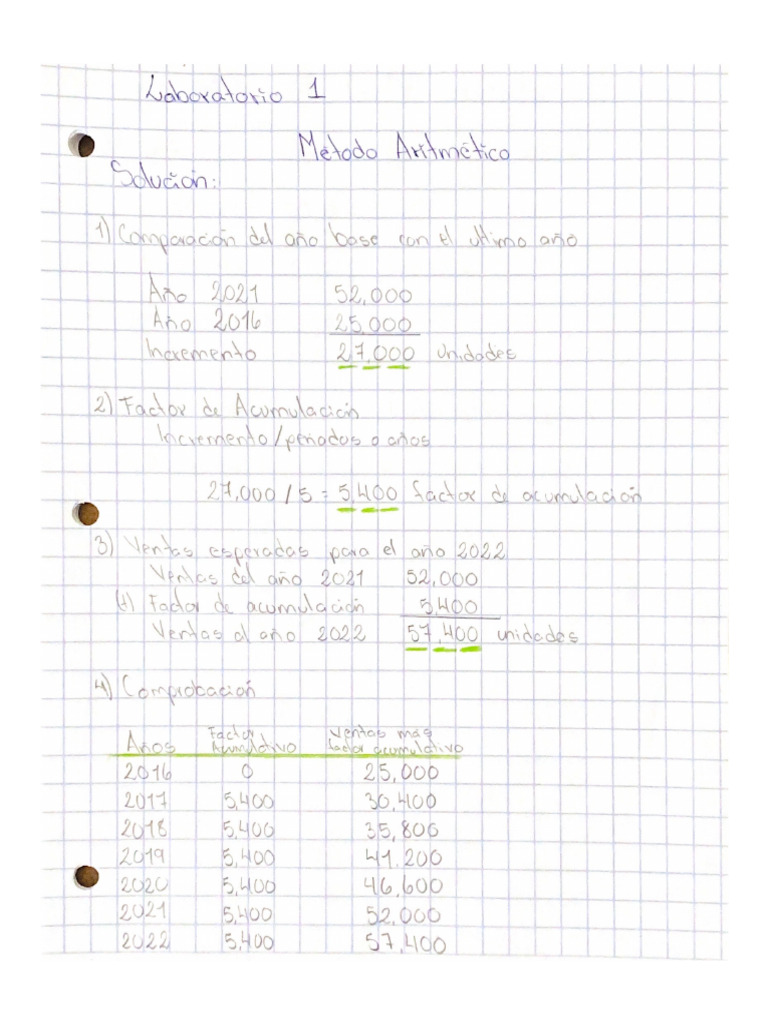 Laboratorio 1
Método Aritmético
Solución:
1) Comparación del año base con el ultimo año
Año 2021 52,000
Año 2016 25,000
Incremento 27,000 unidades
2) Factor de Acumulación
Incremento/periodos o años
27,000 / 5 = 5,400 factor de acumulación
3) Ventas esperadas para el año 2022
Ventas del año 2021 52,000
(+) Factor de acumulación 5,400
Ventas al año 2022 57,400 unidades
4) Comprobación
Años Factor Acumulativo Ventas más factor acumulativo
2016 0 25,000
2017 5,400 30,400
2018 5,400 35,800
2019 5,400 41.200
2020 5,400 46,600
2021 5,400 52,000
2022 5,400 57,400